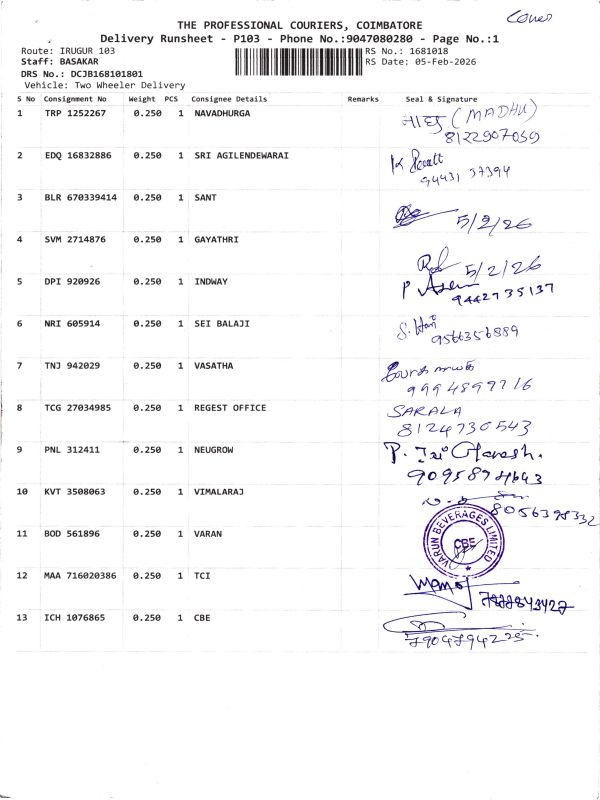 Cover
THE PROFESSIONAL COURIERS, COIMBATORE
Delivery Runsheet - P103 - Phone No.:9047080280 - Page No.:1
Route: IRUGUR 103
RS No.: 1681018
Staff: BASAKAR
RS Date: 05-Feb-2026
DRS No.: DCJB168101801
Vehicle: Two Wheeler Delivery
S No Consignment No Weight PCS Consignee Details Remarks Seal & Signature
1 TRP 1252267 0.250 1 NAVADHURGA (MADHU)
8122907059
2 EDQ 16832886 0.250 1 SRI AGILENDEWARAI
94431 37394
3 BLR 670339414 0.250 1 SANT
5/2/26
4 SVM 2714876 0.250 1 GAYATHRI
5/2/26
5 DPI 920926 0.250 1 INDWAY
9442735137
6 NRI 605914 0.250 1 SEI BALAJI
9566356889
7 TNJ 942029 0.250 1 VASATHA
9994897716
8 TCG 27034985 0.250 1 REGEST OFFICE SARALA
8124730543
9 PNL 312411 0.250 1 NEUGROW
9095874643
10 KVT 3508063 0.250 1 VIMALARAJ
8056398332
11 BOD 561896 0.250 1 VARAN VARUN BEVERAGES LIMITED
CBE
12 MAA 716020386 0.250 1 TCI
13 ICH 1076865 0.250 1 CBE
7904794225